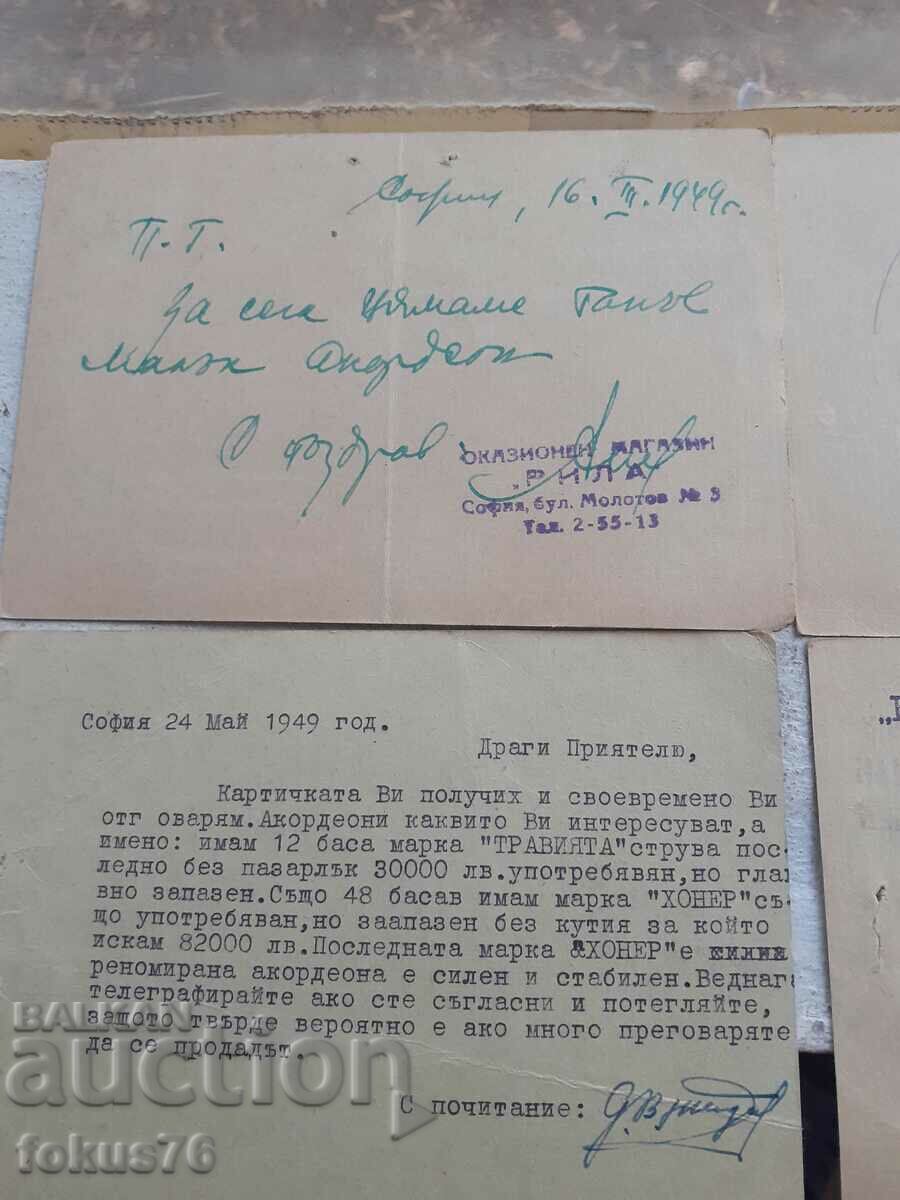 София, 16. III. 1949 г.
П. Г.
За сега нямаме такъв
малък акордеон
С поздрав
ОКАЗИОНЕН МАГАЗИН
„РИЛА
София, бул. Молотов № 3
Тел. 2-55-13
София 24 Май 1949 год.
Драги Приятелю,
Картичката Ви получих и своевремено Ви
отг оварям.Акордеони каквито Ви интересуват,а
имено: имам 12 баса марка "ТРАВИЯТА"струва пос-
ледно без пазарлък 30000 лв.употребявян,но глав
вно запазен.Също 48 басав имам марка "ХОНЕР"съ-
що употребяван,но заапазен без кутия за който
искам 82000 лв.Последната марка "ХОНЕР"е
реномирана акордеона е силен и стабилен.Веднага
телеграфирайте ако сте съгласни и потегляйте,
защото твърде вероятно е ако много преговаряте
да се продадът.
С почитание:
BALKAN
auction
fokus76